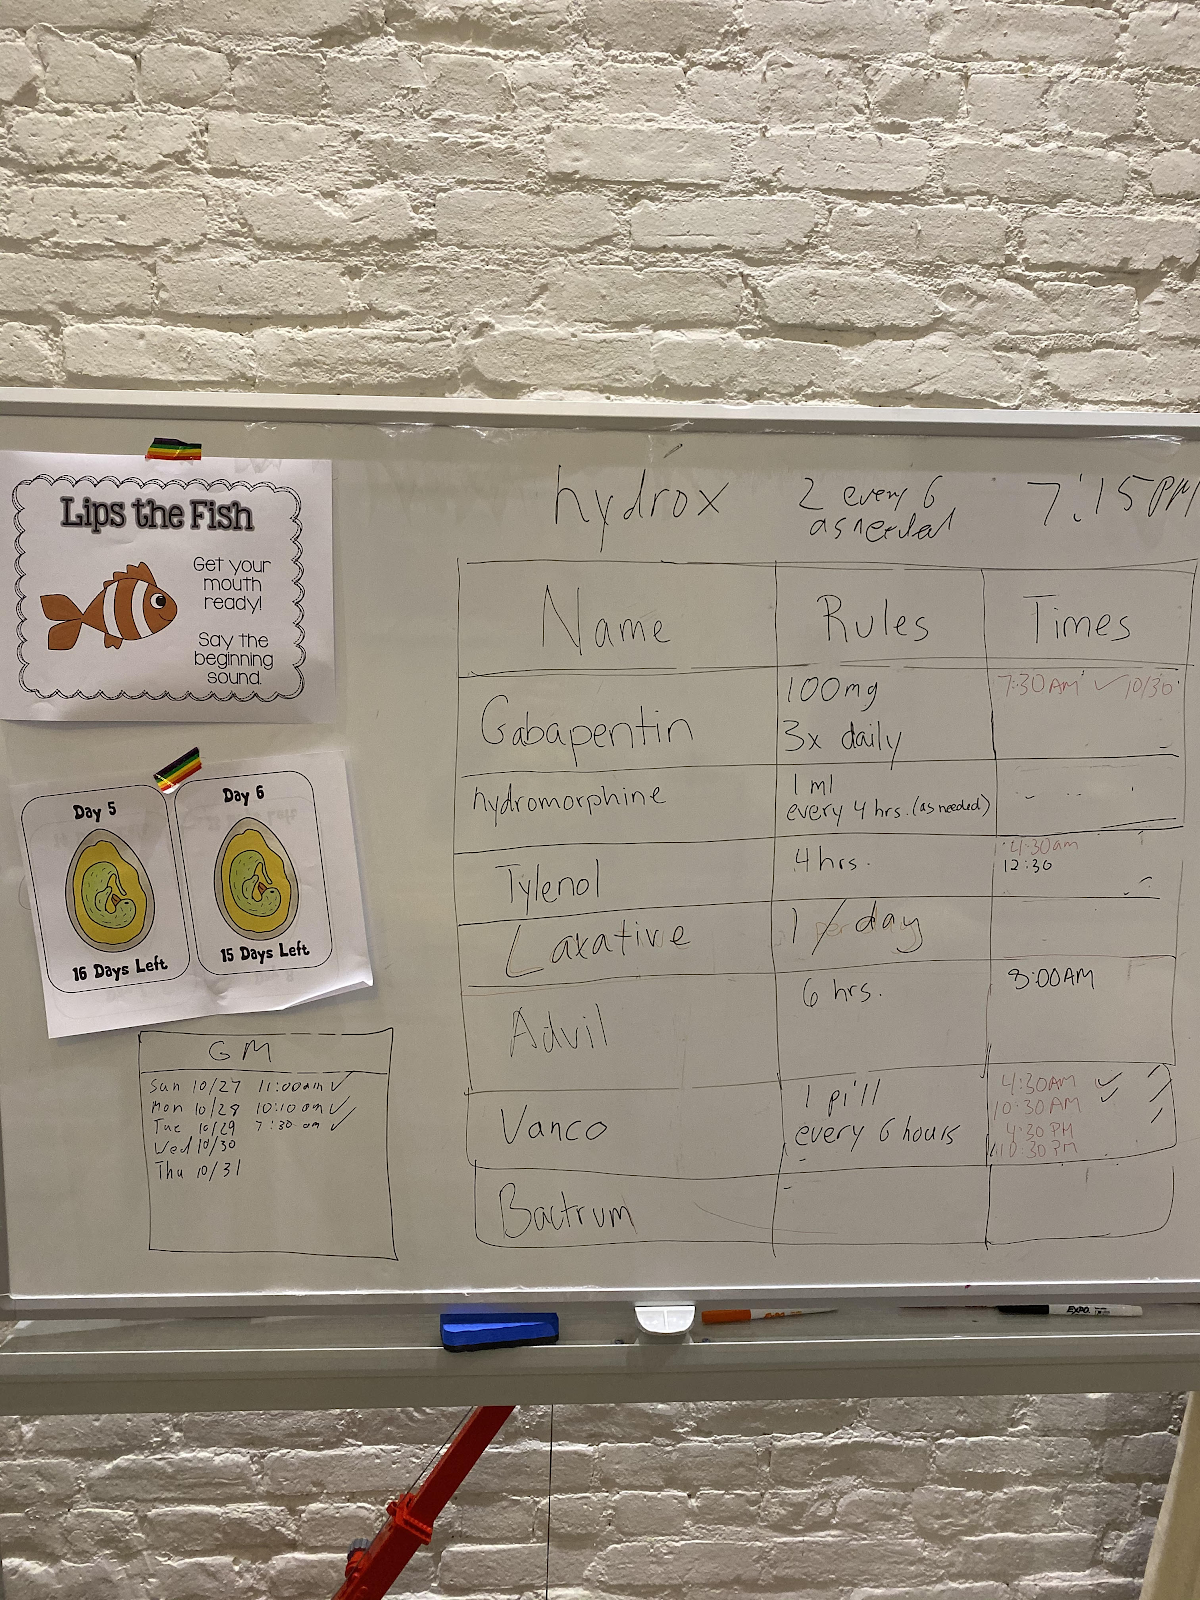 Lips the Fish
Get your
mouth
ready!
Say the
beginning
sound.
Day 5
16 Days Left
Day 6
15 Days Left
GM
Sun 10/27 11:00am ✓
Mon 10/28 10:10am ✓
Tue 10/29 7:30am ✓
Wed 10/30
Thu 10/31
hydrox 2 every 6 7:15PM
as needed
Name Rules Times
Gabapentin 100mg 7:30AM ✓ 10/30
3x daily
hydromorphine 1 ml
every 4 hrs. (as needed)
Tylenol 4 hrs. 4:30am
12:30
Laxative 1 / day
Advil 6 hrs. 8:00AM
Vanco 1 pill 4:30AM ✓
every 6 hours 10:30AM ✓
4:30 PM
10:30PM
Bactrum
EXPO